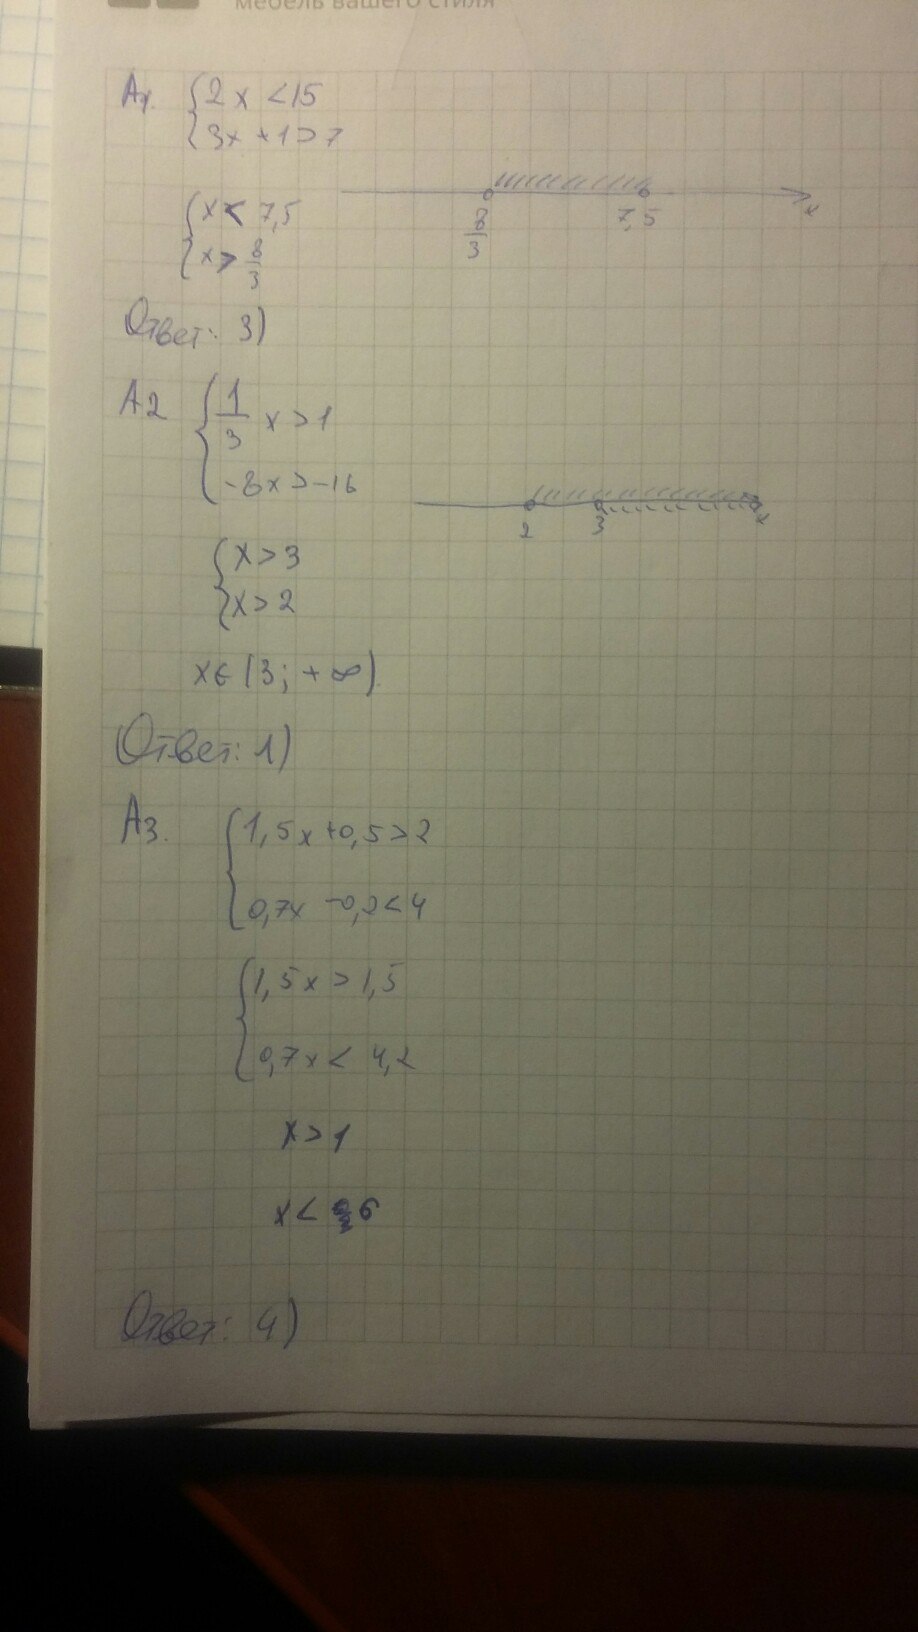 мебель вашего стиля
А1. { 2x < 15
{ 3x + 1 > 7
{ x < 7,5
{ x > 8/3
8/3 7,5 x
Ответ: 3)
А2 { 1/3 x > 1
{ -8x > -16
2 3 x
{ x > 3
{ x > 2
x ∈ (3; +∞).
Ответ: 1)
А3. { 1,5x + 0,5 > 2
{ 0,7x - 0,2 < 4
{ 1,5x > 1,5
{ 0,7x < 4,2
x > 1
x < 6
Ответ: 4)